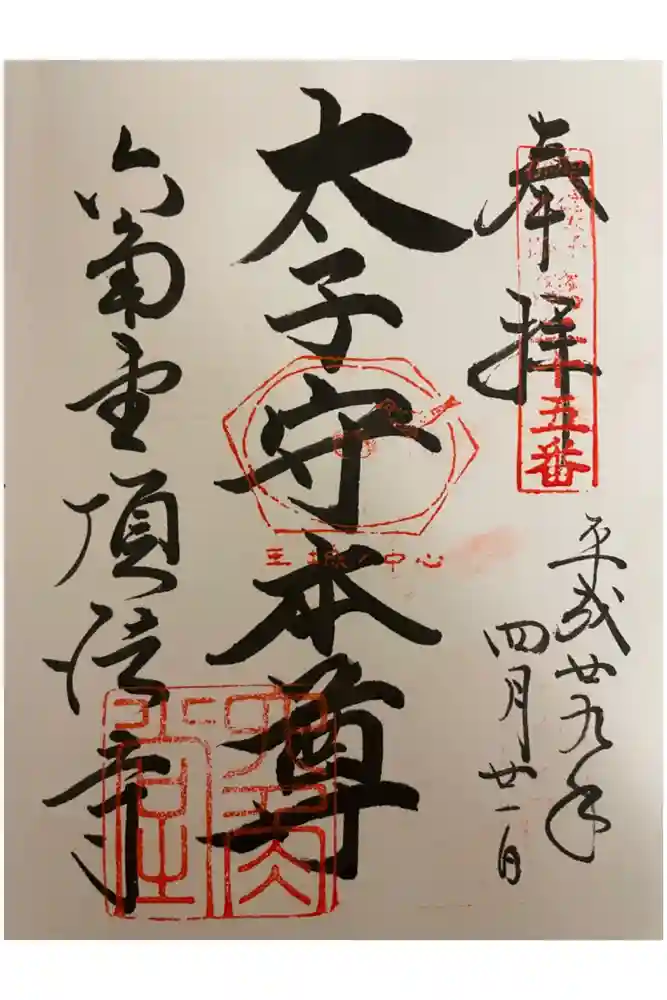 奉拝
五番
平成廿九年
四月廿一日
太子守本尊
六角堂頂法寺
六角